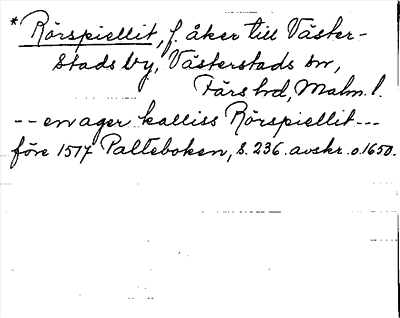 *Rörspiellit, f. åker till Väster-
stads by, Västerstads sn,
Färs hd, Malm. l.
-- en ager kalliss Rörspiellit ---
före 1517 Palteboken, s. 236. avskr. o. 1650.